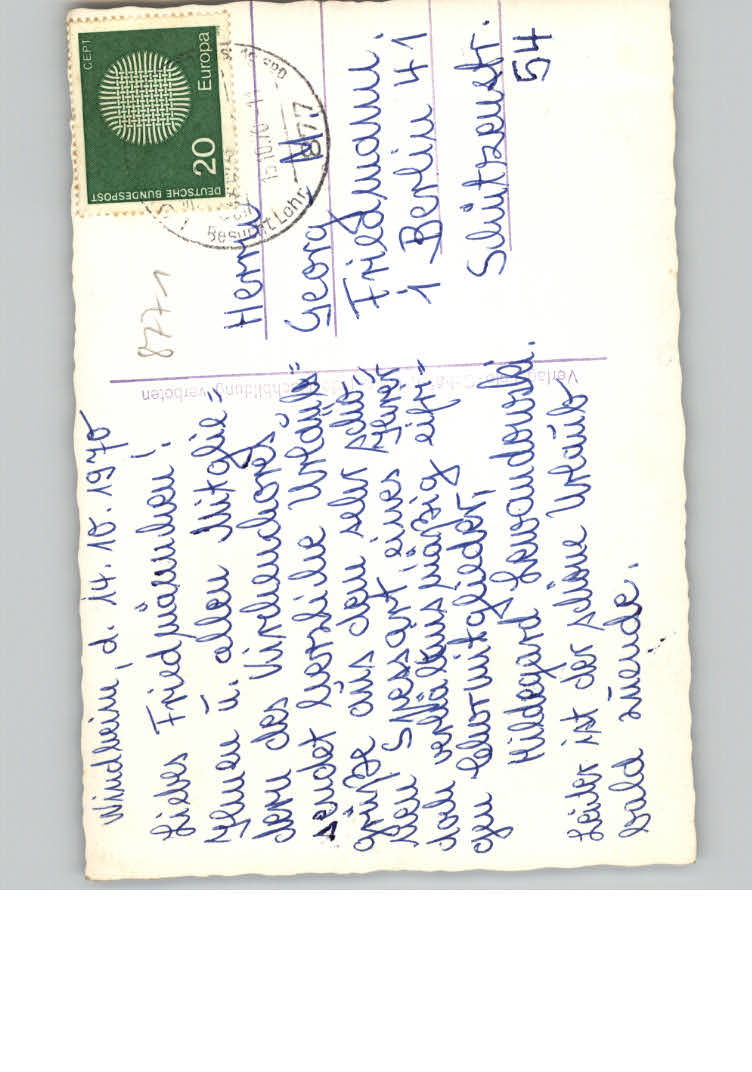 Windheim, d. 14.10.1970
Liebes Friedmännchen!
Ihnen u. allen Mitglie-
dern des Kirchenchores
sendet herzliche Urlaubs-
grüße aus dem sehr schö-
nen Spessart eines Ihrer
doch verhältnismäßig eifri-
gen Chormitglieder,
Hildegard Lewandowski.
Leider ist der schöne Urlaub
bald zuende.
8771
Herrn
Georg M.
Friedmann.
1 Berlin 41
Schützenstr.
54
DEUTSCHE BUNDESPOST
20
Europa
CEPT
877
15.10.70
Besucht Lohr
Nachbildung verboten